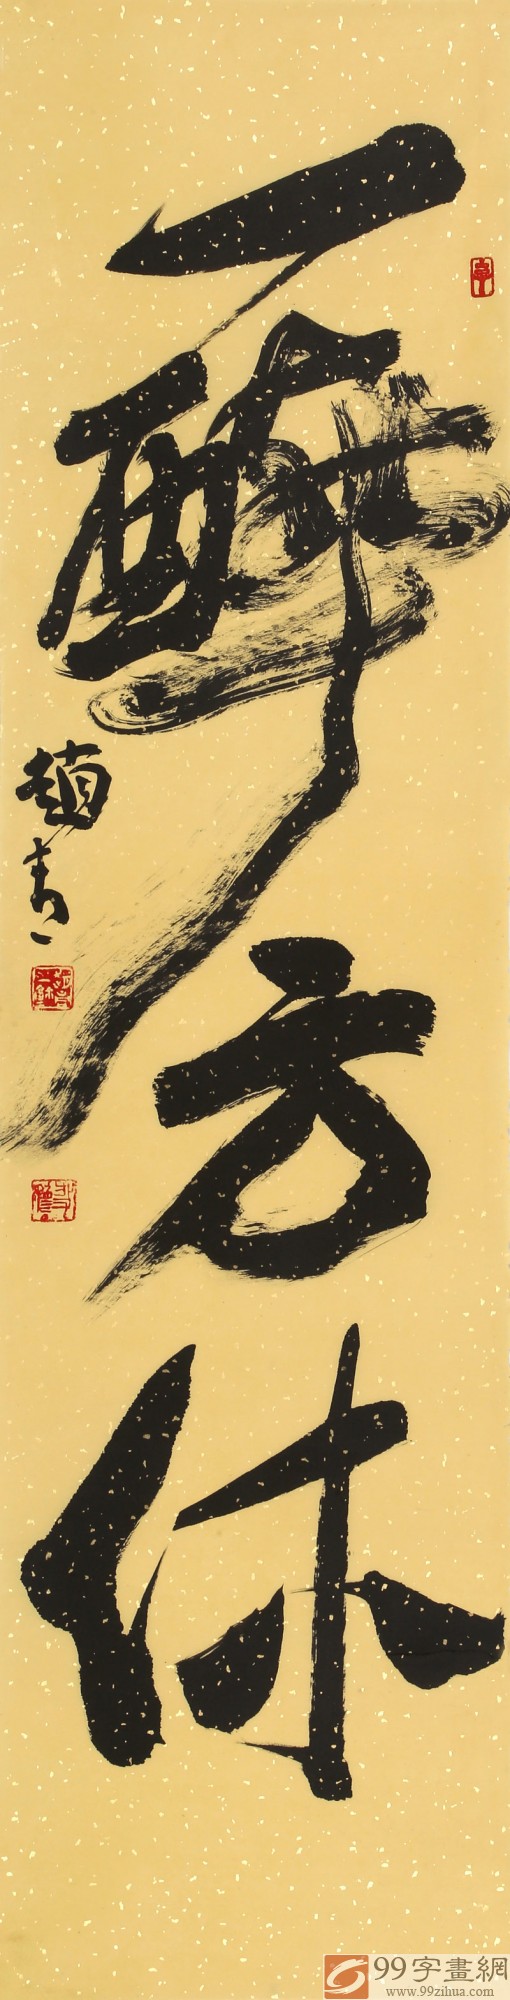 一醉方休
趙青
99字畫網
www.99zihua.com